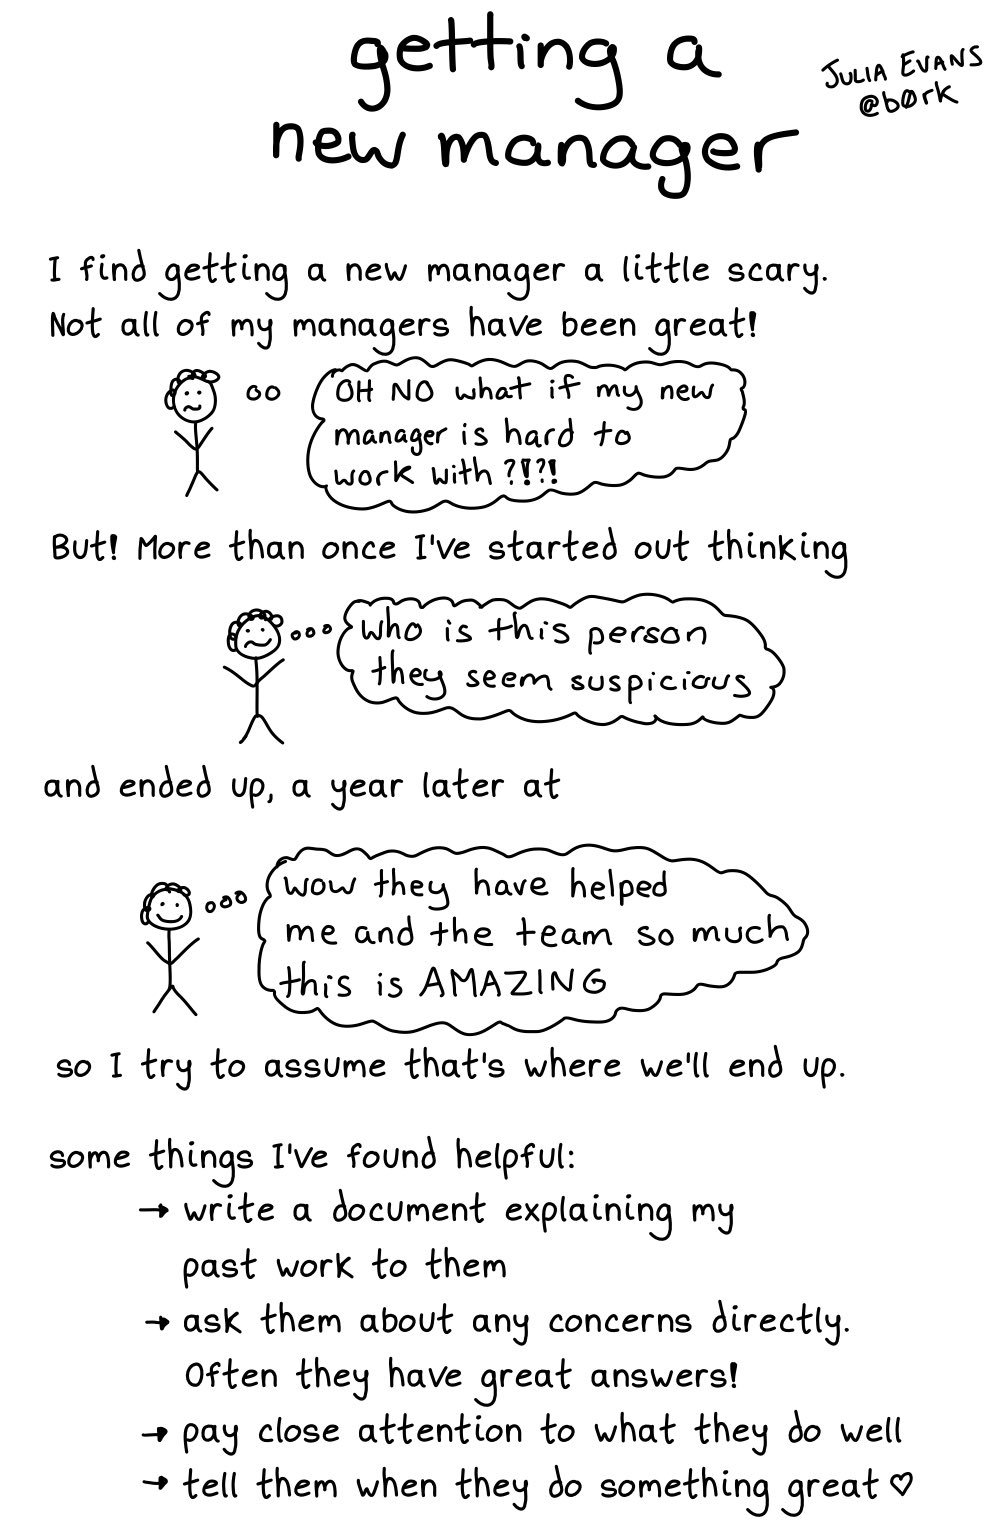 getting a
new manager
JULIA EVANS
@b0rk
I find getting a new manager a little scary.
Not all of my managers have been great!
OH NO what if my new
manager is hard to
work with ?!?!
But! More than once I've started out thinking
who is this person
they seem suspicious
and ended up, a year later at
wow they have helped
me and the team so much
this is AMAZING
so I try to assume that's where we'll end up.
some things I've found helpful:
→ write a document explaining my
past work to them
→ ask them about any concerns directly.
Often they have great answers!
→ pay close attention to what they do well
→ tell them when they do something great ♡